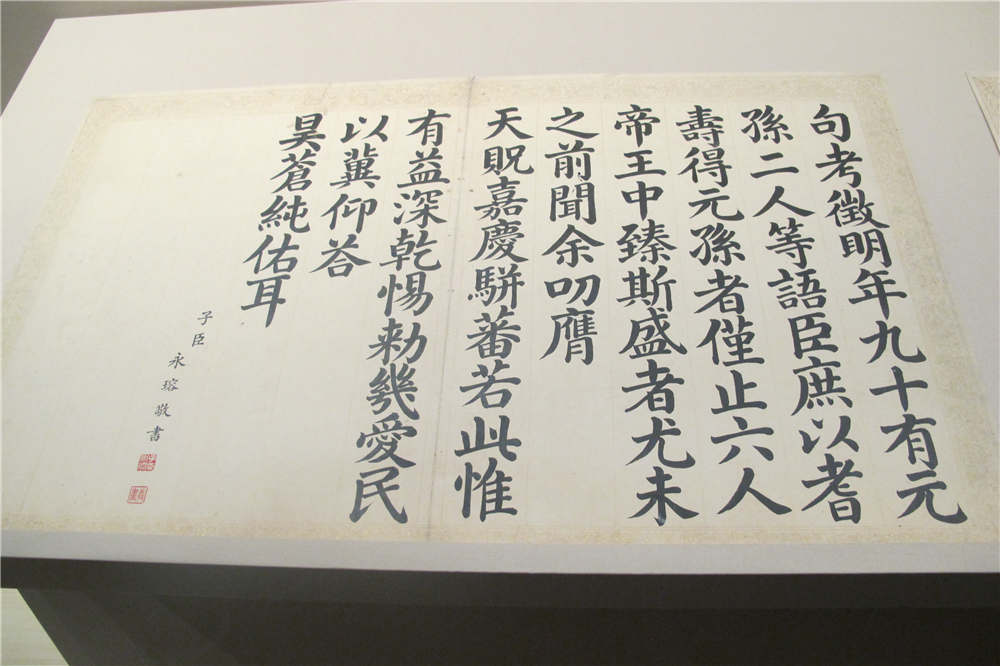 句考徵明年九十有元
孫二人等語臣庶以耆
壽得元孫者僅止六人
帝王中臻斯盛者尤未
之前聞余叨膺
天貺嘉慶駢蕃若此惟
有益深乾惕勑幾愛民
以冀仰答
昊蒼純佑耳
子臣永瑢敬書